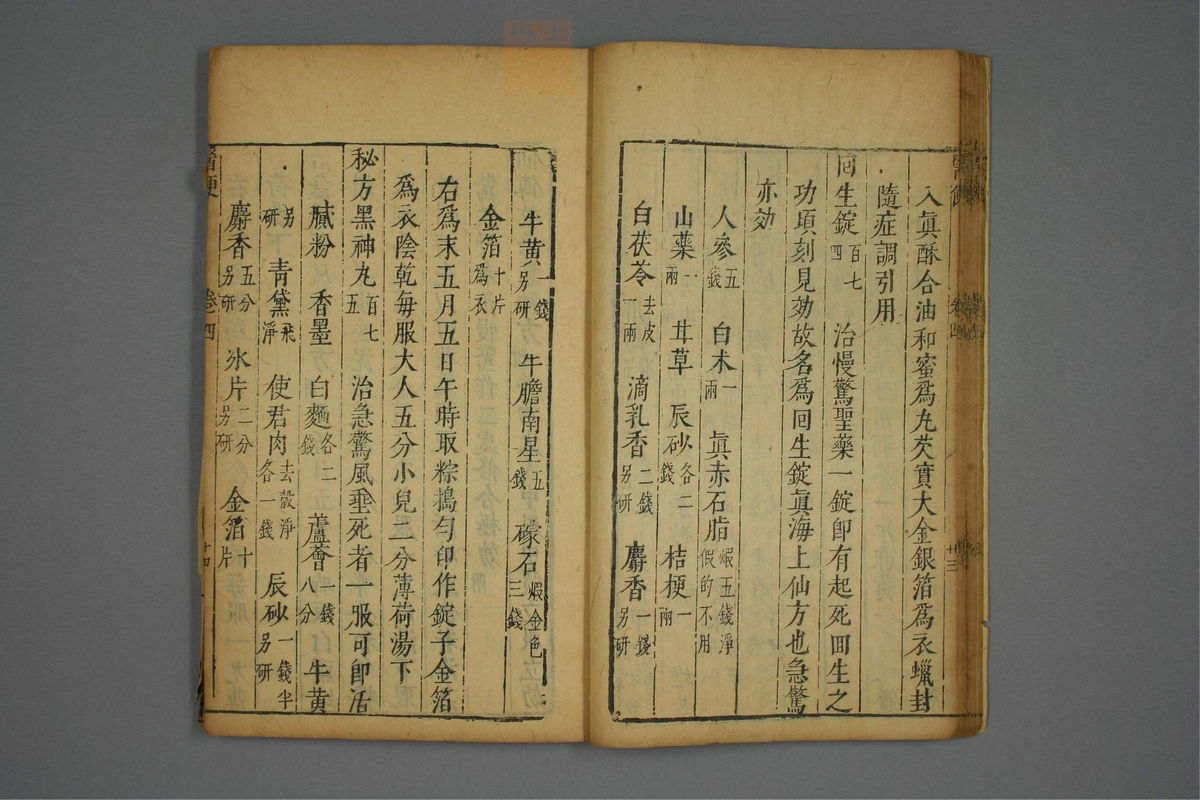 入真酥合油和蜜爲丸芡實大金銀箔爲衣蠟封
隨症調引用
回生錠百七四　治慢驚聖藥一錠即有起死回生之
功頃刻見効故名爲回生錠真海上仙方也急驚
亦効
人參五錢　白术一兩　真赤石脂煆五錢淨假的不用
山藥一兩　甘草　辰砂各二錢　桔梗一兩
白茯苓去皮一兩　滴乳香二錢另研　麝香一錢另研
牛黃一錢另研　牛膽南星五錢　礞石煆金色三錢
金箔十片爲衣
右爲末五月五日午時取粽搗勻印作錠子金箔
爲衣陰乾每服大人五分小兒二分薄荷湯下
秘方黑神丸百七五　治急驚風垂死者一服可即活
膩粉　香墨　白麵各二錢　蘆薈一錢八分　牛黃
另研　青黛飛淨　使君肉去殼淨各一錢　辰砂一錢半另研
麝香五分另研　氷片二分另研　金箔十片
卷四
十三
卷四
十四